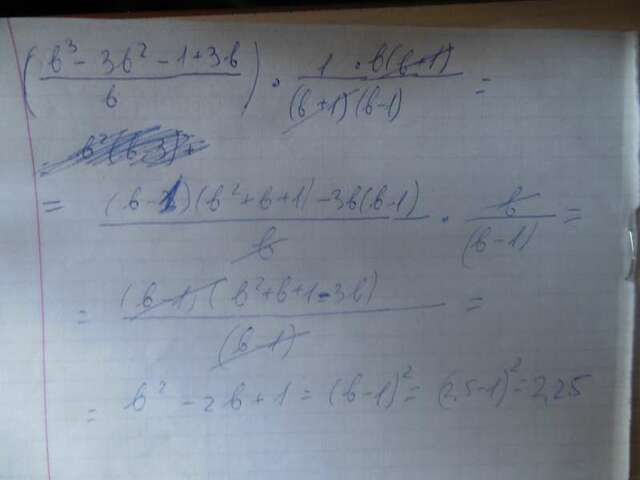 (b³ - 3b² - 1 + 3b / b) · 1 · b(b+1) / (b+1)(b-1) =
= (b-1)(b²+b+1) - 3b(b-1) / b · b / (b-1) =
= (b-1)(b²+b+1-3b) / (b-1) =
= b² - 2b + 1 = (b-1)² = (2,5-1)² = 2,25